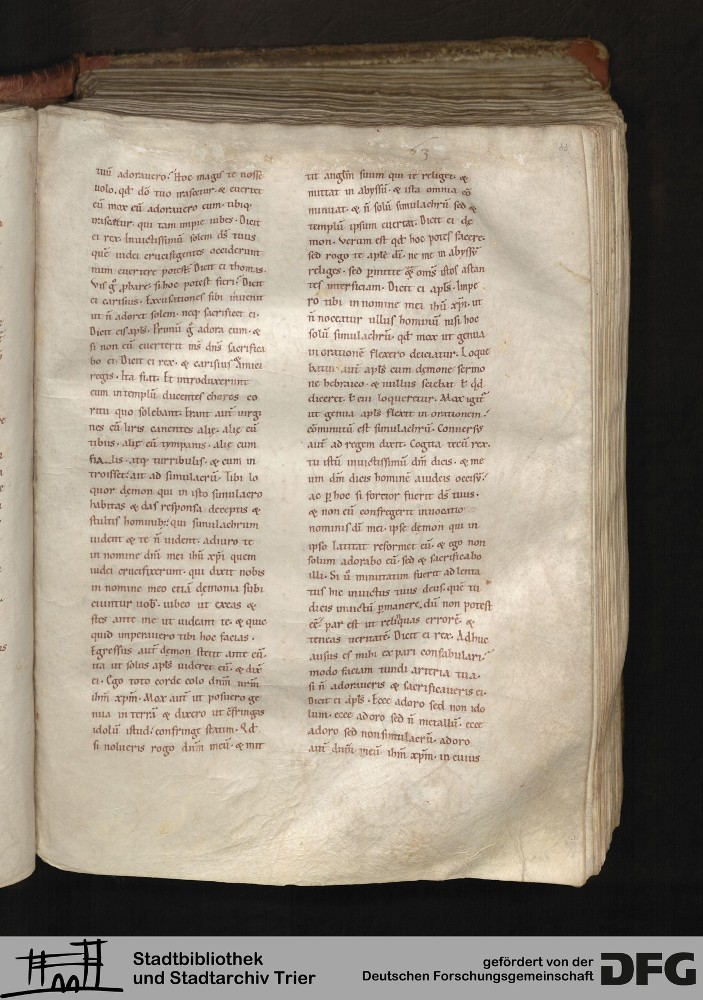 63
tuū adorauero. Hoc magis te nosse
uolo. qd dō tuo irascetur. & euertet
eū mox cū adorauero eum. ubiq;
irascetur. qui tam impie iubes. Dicit
ei rex. Inuictissimū solem ds̄ tuus
quē iudei crucifigentes occiderunt
num euertere potest. Dicit ei thomas.
Vis gͦ phare si hoc potest fieri. Dicit
ei carisius. Excusationes sibi inuenit
ut n̄ adoret solem. neq; sacrificet ei.
Dicit eis apls. Primū gͦ adora eum. &
si non eū euerterit ms̄ dns̄ sacrifica
bo ei. Dicit ei rex. & carisius amici
regis. Ita fiat. Et introduxerunt
eum in templū ducentes choros eo
ritu quo solebant. Erant aut̄ uirgi
nes cū liris canentes alię. alię cū
tibiis. alię cū tympanis. alię cum
atq; turribulis. & cum in
troisset aut ad simulacrū. Tibi lo
quor demon qui in isto simulacro
habitas & das responsa deceptis &
stultis hominib; qui simulachrum
uident & te n̄ uident. adiuro te
in nomine dnī mei ihū xp̄i quem
iudei crucifixerunt. qui dixit nobis
in nomine meo etiā demonia subi
ciuntur uob. iubeo ut exeas &
stes ante me ut uideam te. & quic
quid imperauero tibi hoc facias.
Egressus aut̄ demon stetit ante eū.
ita ut solus apls uideret eū. & dix̄
ei. Ego toto corde colo dnm̄ nrm̄
ihm̄ xpm̄. Mox aut̄ ut posuero ge
nua in terrā & dixero ut c̄fringas
idolū istud. confringe statim. Qd
si nolueris rogo dnm̄ meū. & mit
tit anglm̄ suum qui te religet. &
mittat in abyssū. & ista omnia cō
minuat. & n̄ solū simulachrū sed &
templū ipsum euertat. Dicit ei de
mon. Verum est qd hoc potes facere.
sed rogo te aplē dī. ne me in abyssū
religes. sed pmitte & om̄s istos astan
tes interficiam. Dicit ei apls. Impe
ro tibi in nomine mei ihū xp̄i. ut
n̄ noceatur ullus hominū nisi hoc
solū simulachrū. qd mox ut genua
in oratione flexero deiciatur. Loque
batur aut̄ apls cum demone sermo
ne hebraico. & nullus sciebat ł qd
diceret. ł cui loqueretur. Mox igit̄
ut genua apls flexit in orationem.
cōminutū est simulachrū. Conuersus
aut̄ ad regem dixit. Cogita tecū rex.
tu istū inuictissimū dm̄ dicis. & me
um dm̄ dicis hominē a iudeis occisū.
ac p hoc si fortior fuerit ds̄ tuus.
& non eū confregerit inuocatio
nominis dī mei. ipse demon qui in
ipso latitat reformet eū. & ego non
solum adorabo eū. sed & sacrificabo
illi. Si ū minutatim fuerit ad lenta
tus hic inuictus tuus deus. quē tu
dicis inuictū pmanere. dū non potest
cē. par est ut relinquas errorē. &
teneas ueritatē. Dicit ei rex. Adhuc
ausus es mihi ex pari confabulari.
modo faciam tundi arteria tua.
si n̄ adoraueris & sacrificaueris ei.
Dicit ei apls. Ecce adoro sed non ido
lum. ecce adoro sed n̄ metallū. ecce
adoro sed non simulacrū. adoro
aut̄ dnm̄ meū ihm̄ xpm̄. in cuius
Stadtbibliothek
und Stadtarchiv Trier
gefördert von der
Deutschen Forschungsgemeinschaft
DFG